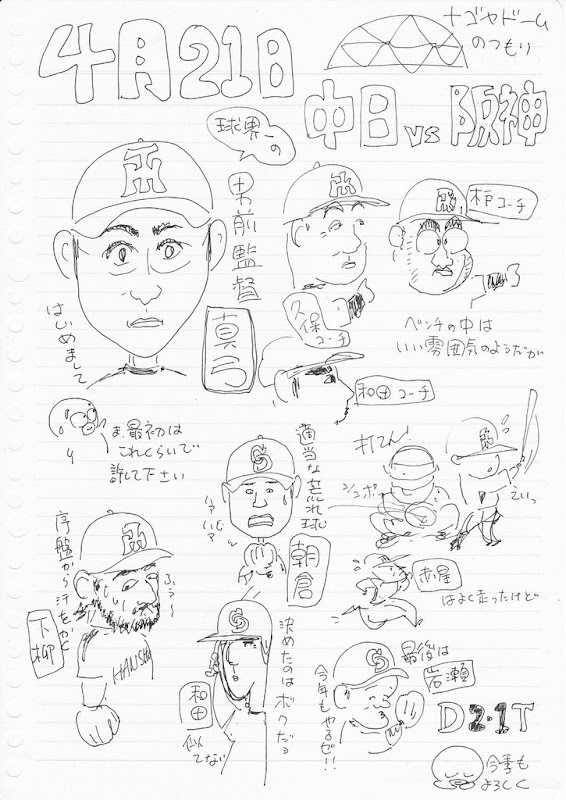 4月21日
ナゴヤドーム
のつもり
中日 vs 阪神
球界一の
男前監督
真弓
はじめまして
久保
コーチ
木戸コーチ
ベンチの中は
いい雰囲気のようだが
和田コーチ
ま、最初は
これくらいで
許して下さい
適当な荒れ球
朝倉
ハァハァ
打てん!
シュボ
えいっ
赤星
はよく走ったけど
序盤から汗をかく
下柳
ふぅ〜
HANSHIN
決めたのはボクだョ
和田
似てない
今年もやるぜ!!
最後は
岩瀬
D 2-1 T
今季も
よろしく